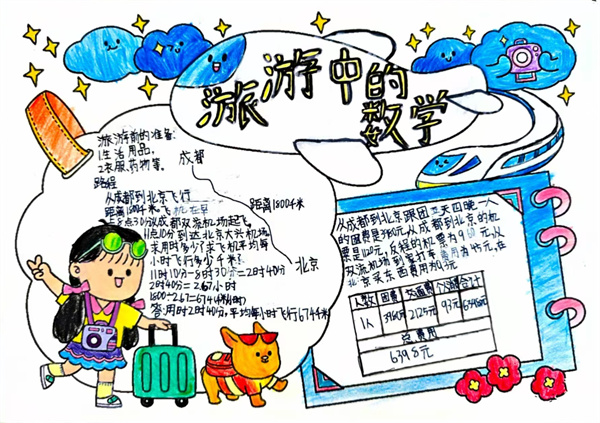 旅游中的数学
旅游前的准备:
1.生活用品,
2.衣服药物等。
成都
路程
从成都到北京飞行
距离1800千米
距离1800千米,飞机在早
上8点30分从成都双流机场起飞,
11点10分到达北京大兴机场,
求用时多少?求飞机平均每
小时飞行多少千米?
北京
11时10分-8时30分=2时40分
2时40分≈2.67小时
1800÷2.67≈674(千米/时)
答:用时2时40分,平均每小时飞行674千米
从成都到北京跟团五天四晚一人
的团费是3980元从成都到北京的机
票是1120元,返程的机票为
双流机场到家打车费用为45元,在
北京买东西费用
人数 团费 交通费 合计
1人 3980元 2125元 93元
总费用
6398元